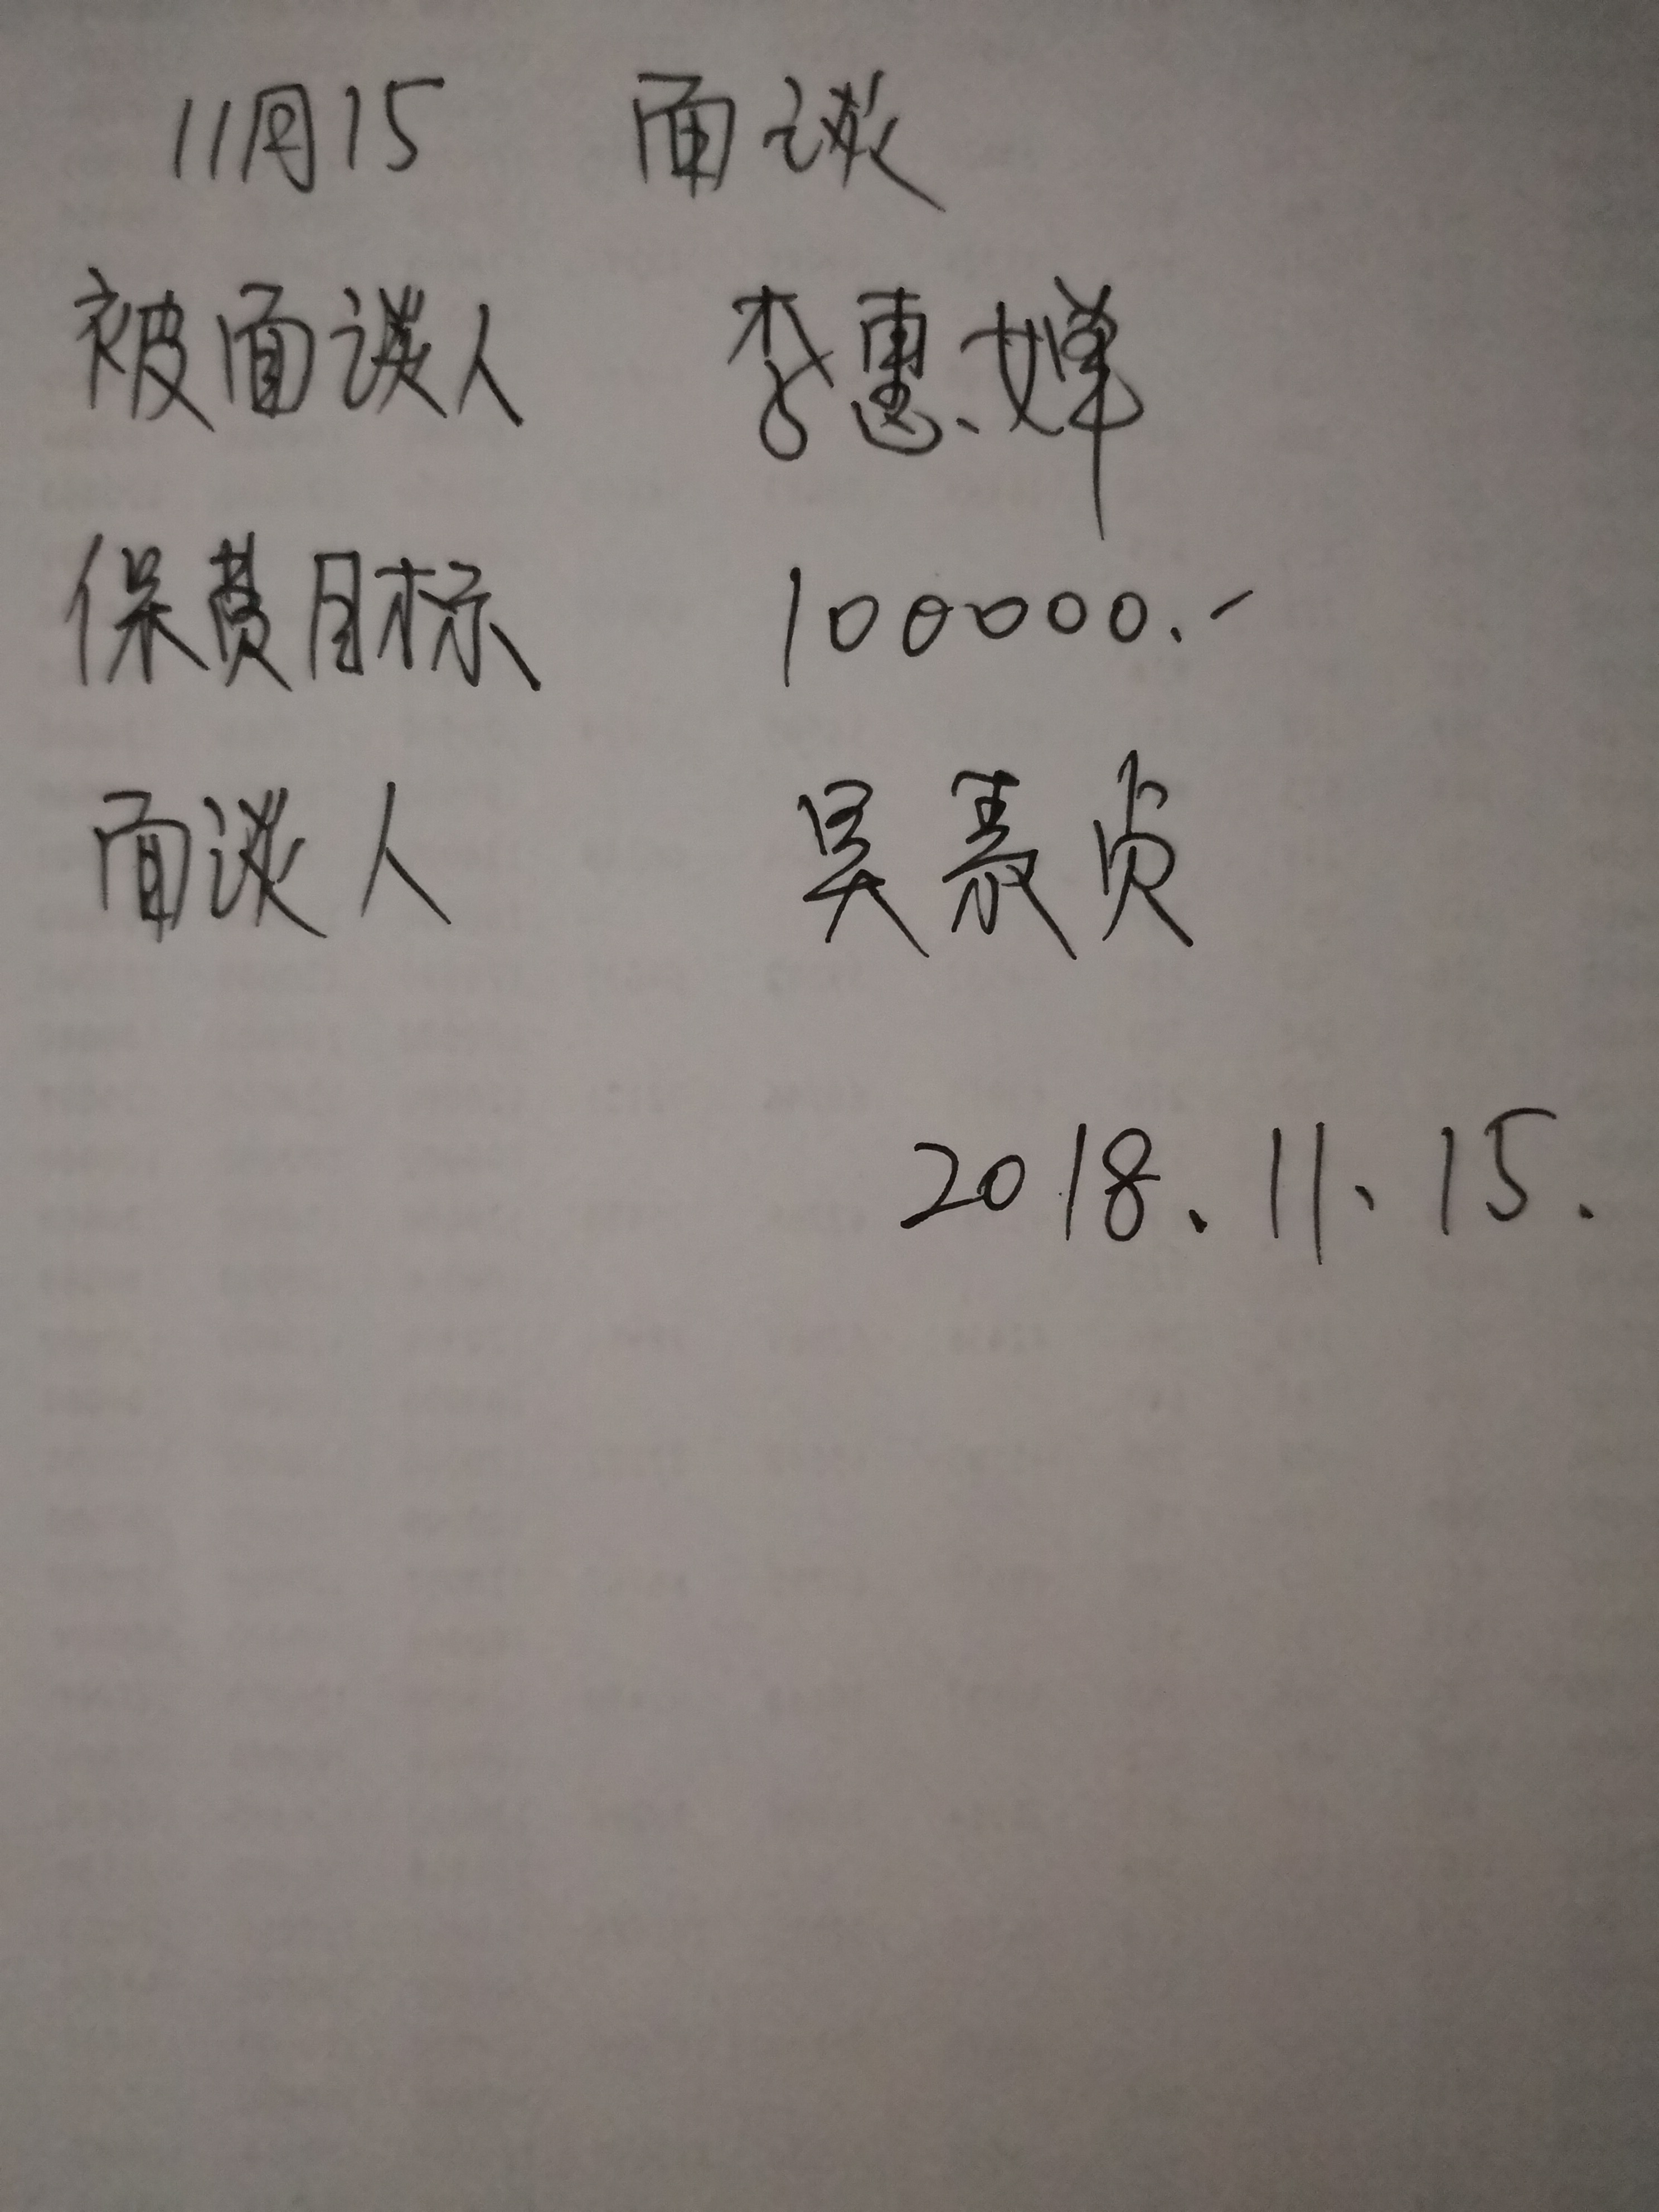 11月15 面谈
被面谈人 李惠婵
保费目标 100000.-
面谈人 吴慕贞
2018.11.15.